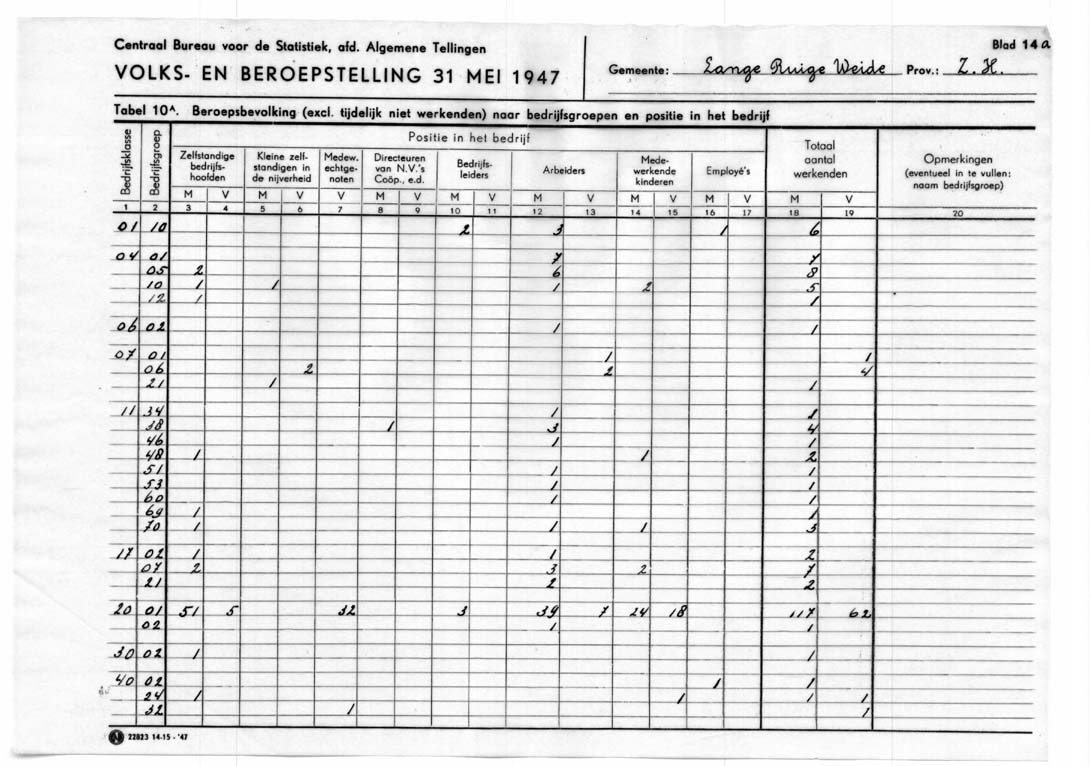 Centraal Bureau voor de Statistiek, afd. Algemene Tellingen
Blad 14a
VOLKS- EN BEROEPSTELLING 31 MEI 1947
Gemeente: Lange Ruige Weide Prov.: Z.H.
Tabel 10A. Beroepsbevolking (excl. tijdelijk niet werkenden) naar bedrijfsgroepen en positie in het bedrijf
Bedrijfsklasse Bedrijfsgroep Positie in het bedrijf Totaal aantal werkenden Opmerkingen (eventueel in te vullen: naam bedrijfsgroep)
Zelfstandige bedrijfs-hoofden Kleine zelf-standigen in de nijverheid Medew. echtge-noten Directeuren van N.V.'s Coöp., e.d. Bedrijfs-leiders Arbeiders Mede-werkende kinderen Employé's
M V M V V M V M V M V M V M V M V
1 2 3 4 5 6 7 8 9 10 11 12 13 14 15 16 17 18 19 20
01 10 2 3 1 6
04 01 7 7
05 2 6 8
10 1 1 1 2 5
12 1 1
06 02 1 1
07 01 1 1
06 2 2 4
21 1 1
11 34 1 1
38 1 3 4
46 1 1
48 1 1 2
51 1 1
53 1 1
60 1 1
69 1 1
70 1 1 1 3
17 02 1 1 2
07 2 3 2 7
21 2 2
20 01 51 5 32 3 39 7 24 18 117 62
02 1 1
30 02 1 1
40 02 1 1
24 1 1 1 1
32 1 1
N 22823 14-15 - '47